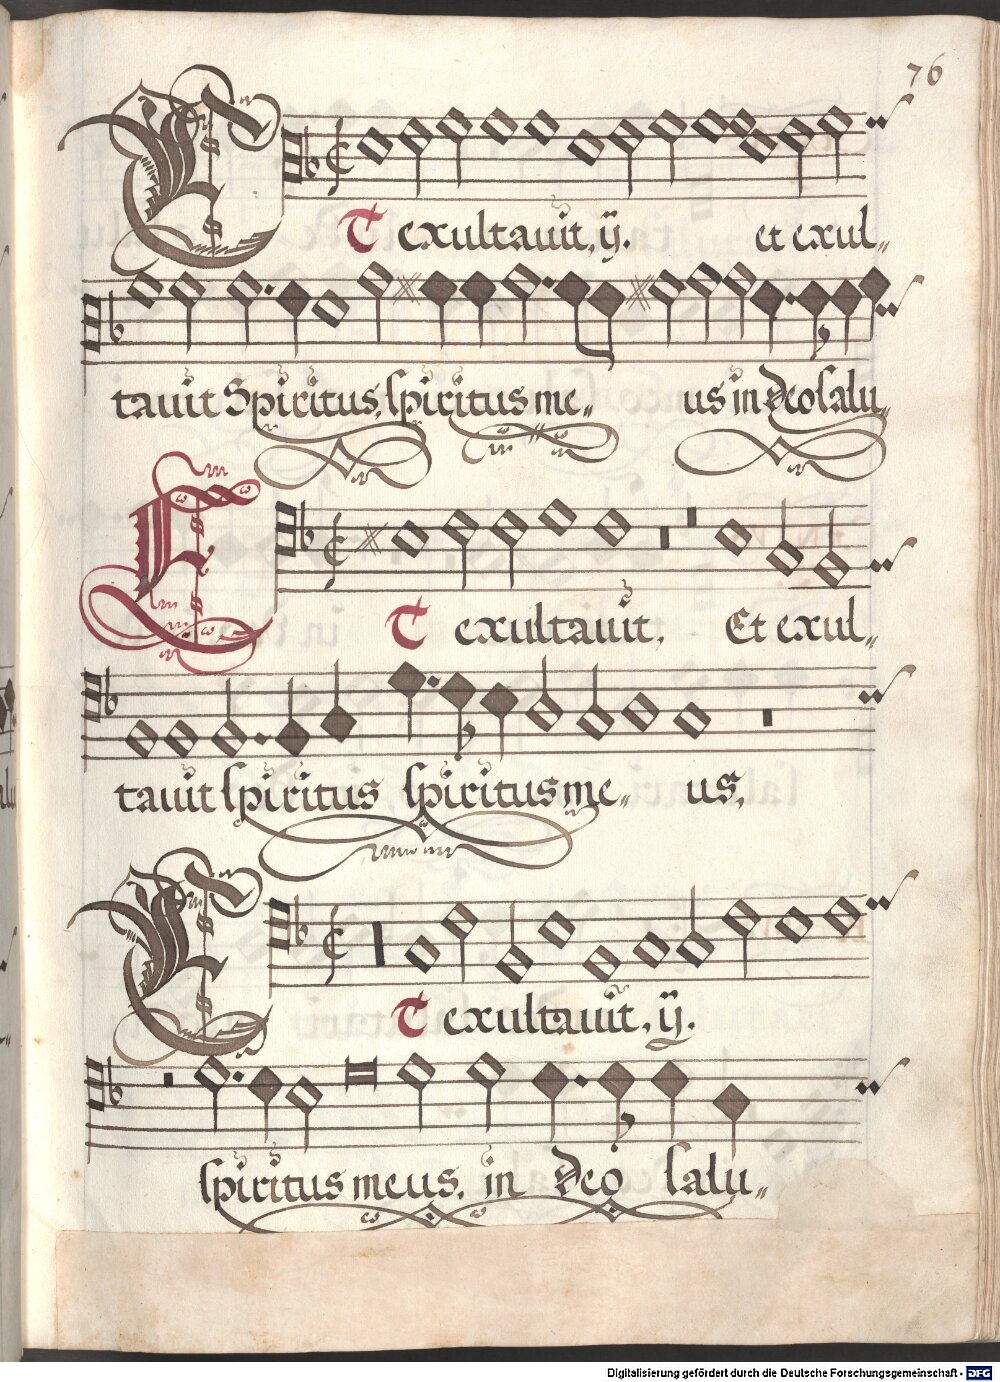 76
ET exultauit, ij. et exul„
tauit Spiritus, spiritus me„ us in deo salu„
ET exultauit, Et exul„
tauit spiritus spiritus me„ us,
ET exultauit, ij.
spiritus meus, in deo salu„
Digitalisierung gefördert durch die Deutsche Forschungsgemeinschaft - DFG